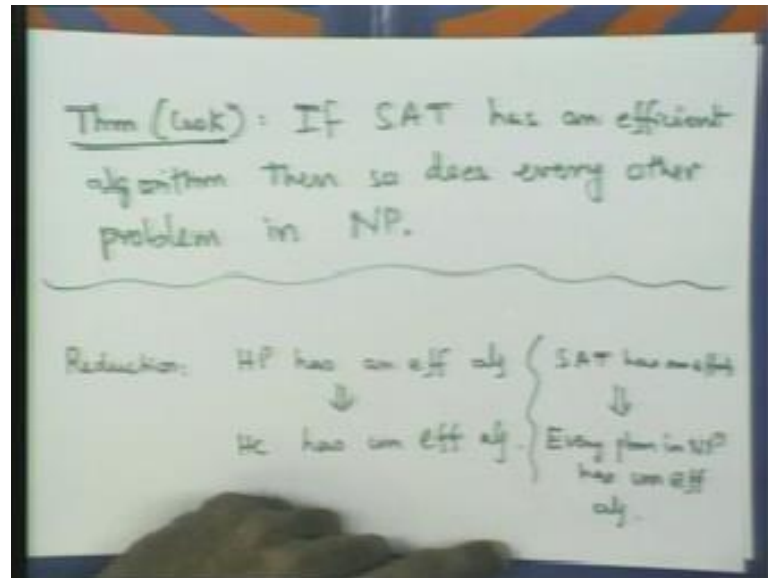 Thm (Cook): If SAT has an efficient
algorithm then so does every other
problem in NP.
Reduction: HP has an eff alg
⇓
HC has an eff alg.
SAT has an eff alg
⇓
Every prom in NP
has an eff
alg.